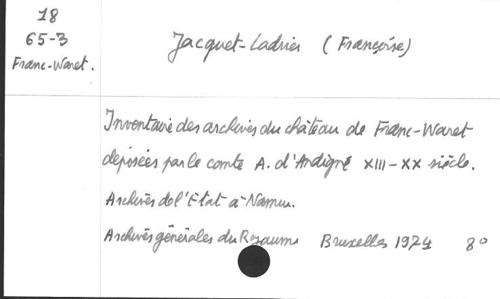 18
65-3
Franc-Waret.
Jacquet-Ladrier (Françoise)
Inventaire des archives du château de Franc-Waret
déposées par le comte A. d'Andigné XIII-XX siècle.
Archives de l'Etat à Namur.
Archives générales du Royaume Bruxelles 1974 8°